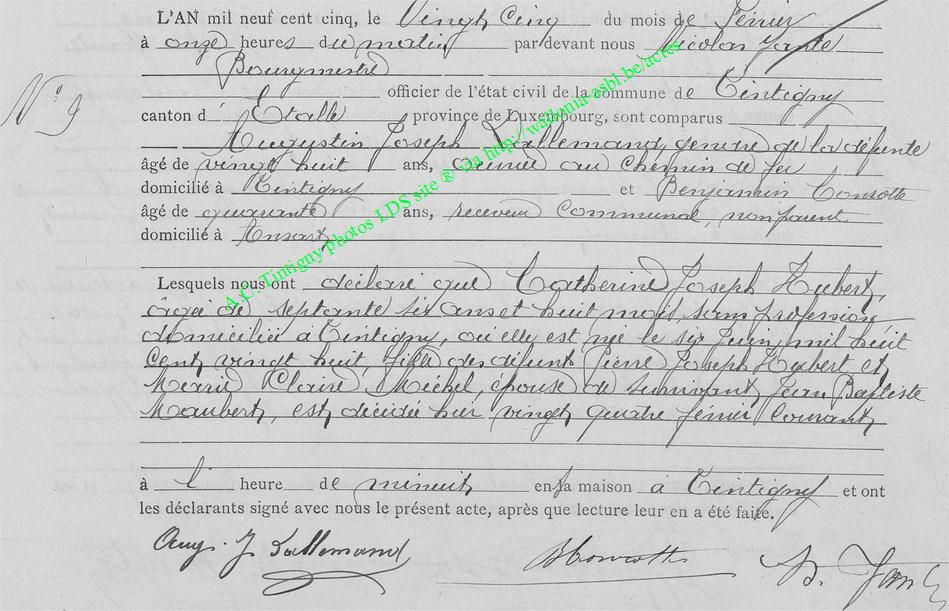 L'AN mil neuf cent cinq, le Vingt Cinq du mois de Février
à onze heures du matin par devant nous Nicolas
Bourgmestre
officier de l'état civil de la commune de Tintigny
N° 9
canton d'Etalle province de Luxembourg, sont comparus
Augustin Joseph Lallemand, gendre de la défunte
âgé de vingt huit ans, au Chemin de fer
domicilié à Tintigny et Benjamin
âgé de quarante ans, receveur Communal, non parent
domicilié à Ansart
Lesquels nous ont déclaré que Catherine Joseph Hubert,
âgée de septante six ans et huit mois, sans profession
domiciliée à Tintigny, où elle est née le six Juin mil huit
Cent vingt huit, fille des défunts Pierre Joseph Hubert et
Marie Claire Michel, épouse de survivant Jean Baptiste
Maubert, est décédée hier vingt quatre février Courant,
à l' heure de minuit en sa maison à Tintigny et ont
les déclarants signé avec nous le présent acte, après que lecture leur en a été faite.
Aug. J Lallemand
A.C. Tintigny photos LDS site ® via http://wallonia-asbl.be/actes